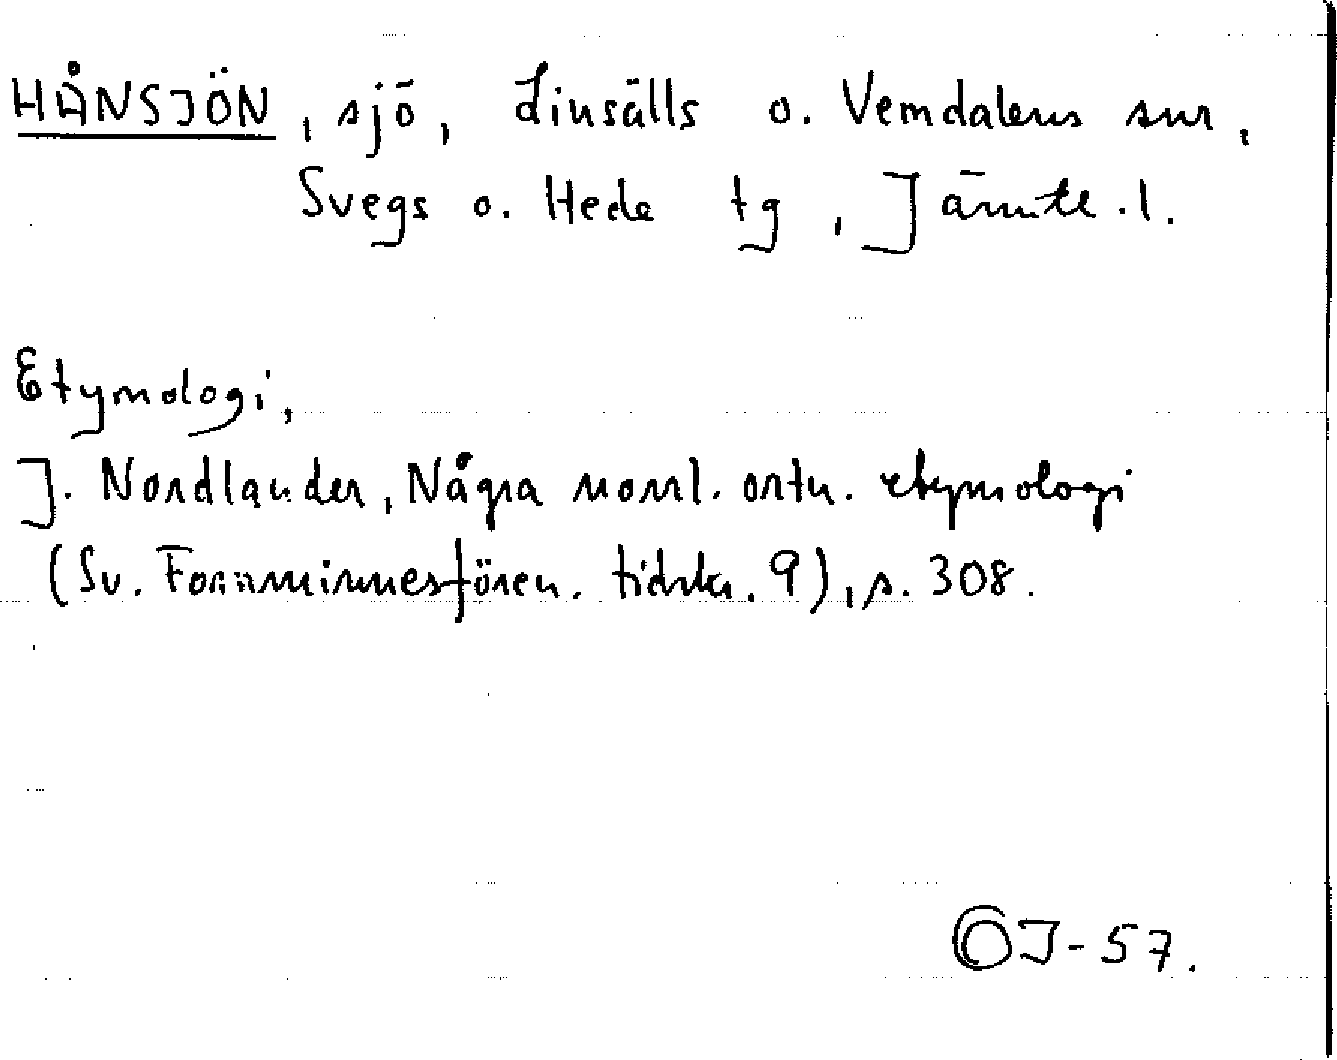 HÅNSJÖN, sjö, Linsälls o. Vemdalens snr,
Svegs o. Hede tg, Jämtl. l.
Etymologi,
J. Nordlander, Några norrl. ortn. etymologi
(Sv. Fornminnesfören. tidskr. 9), s. 308.
OJ-57.